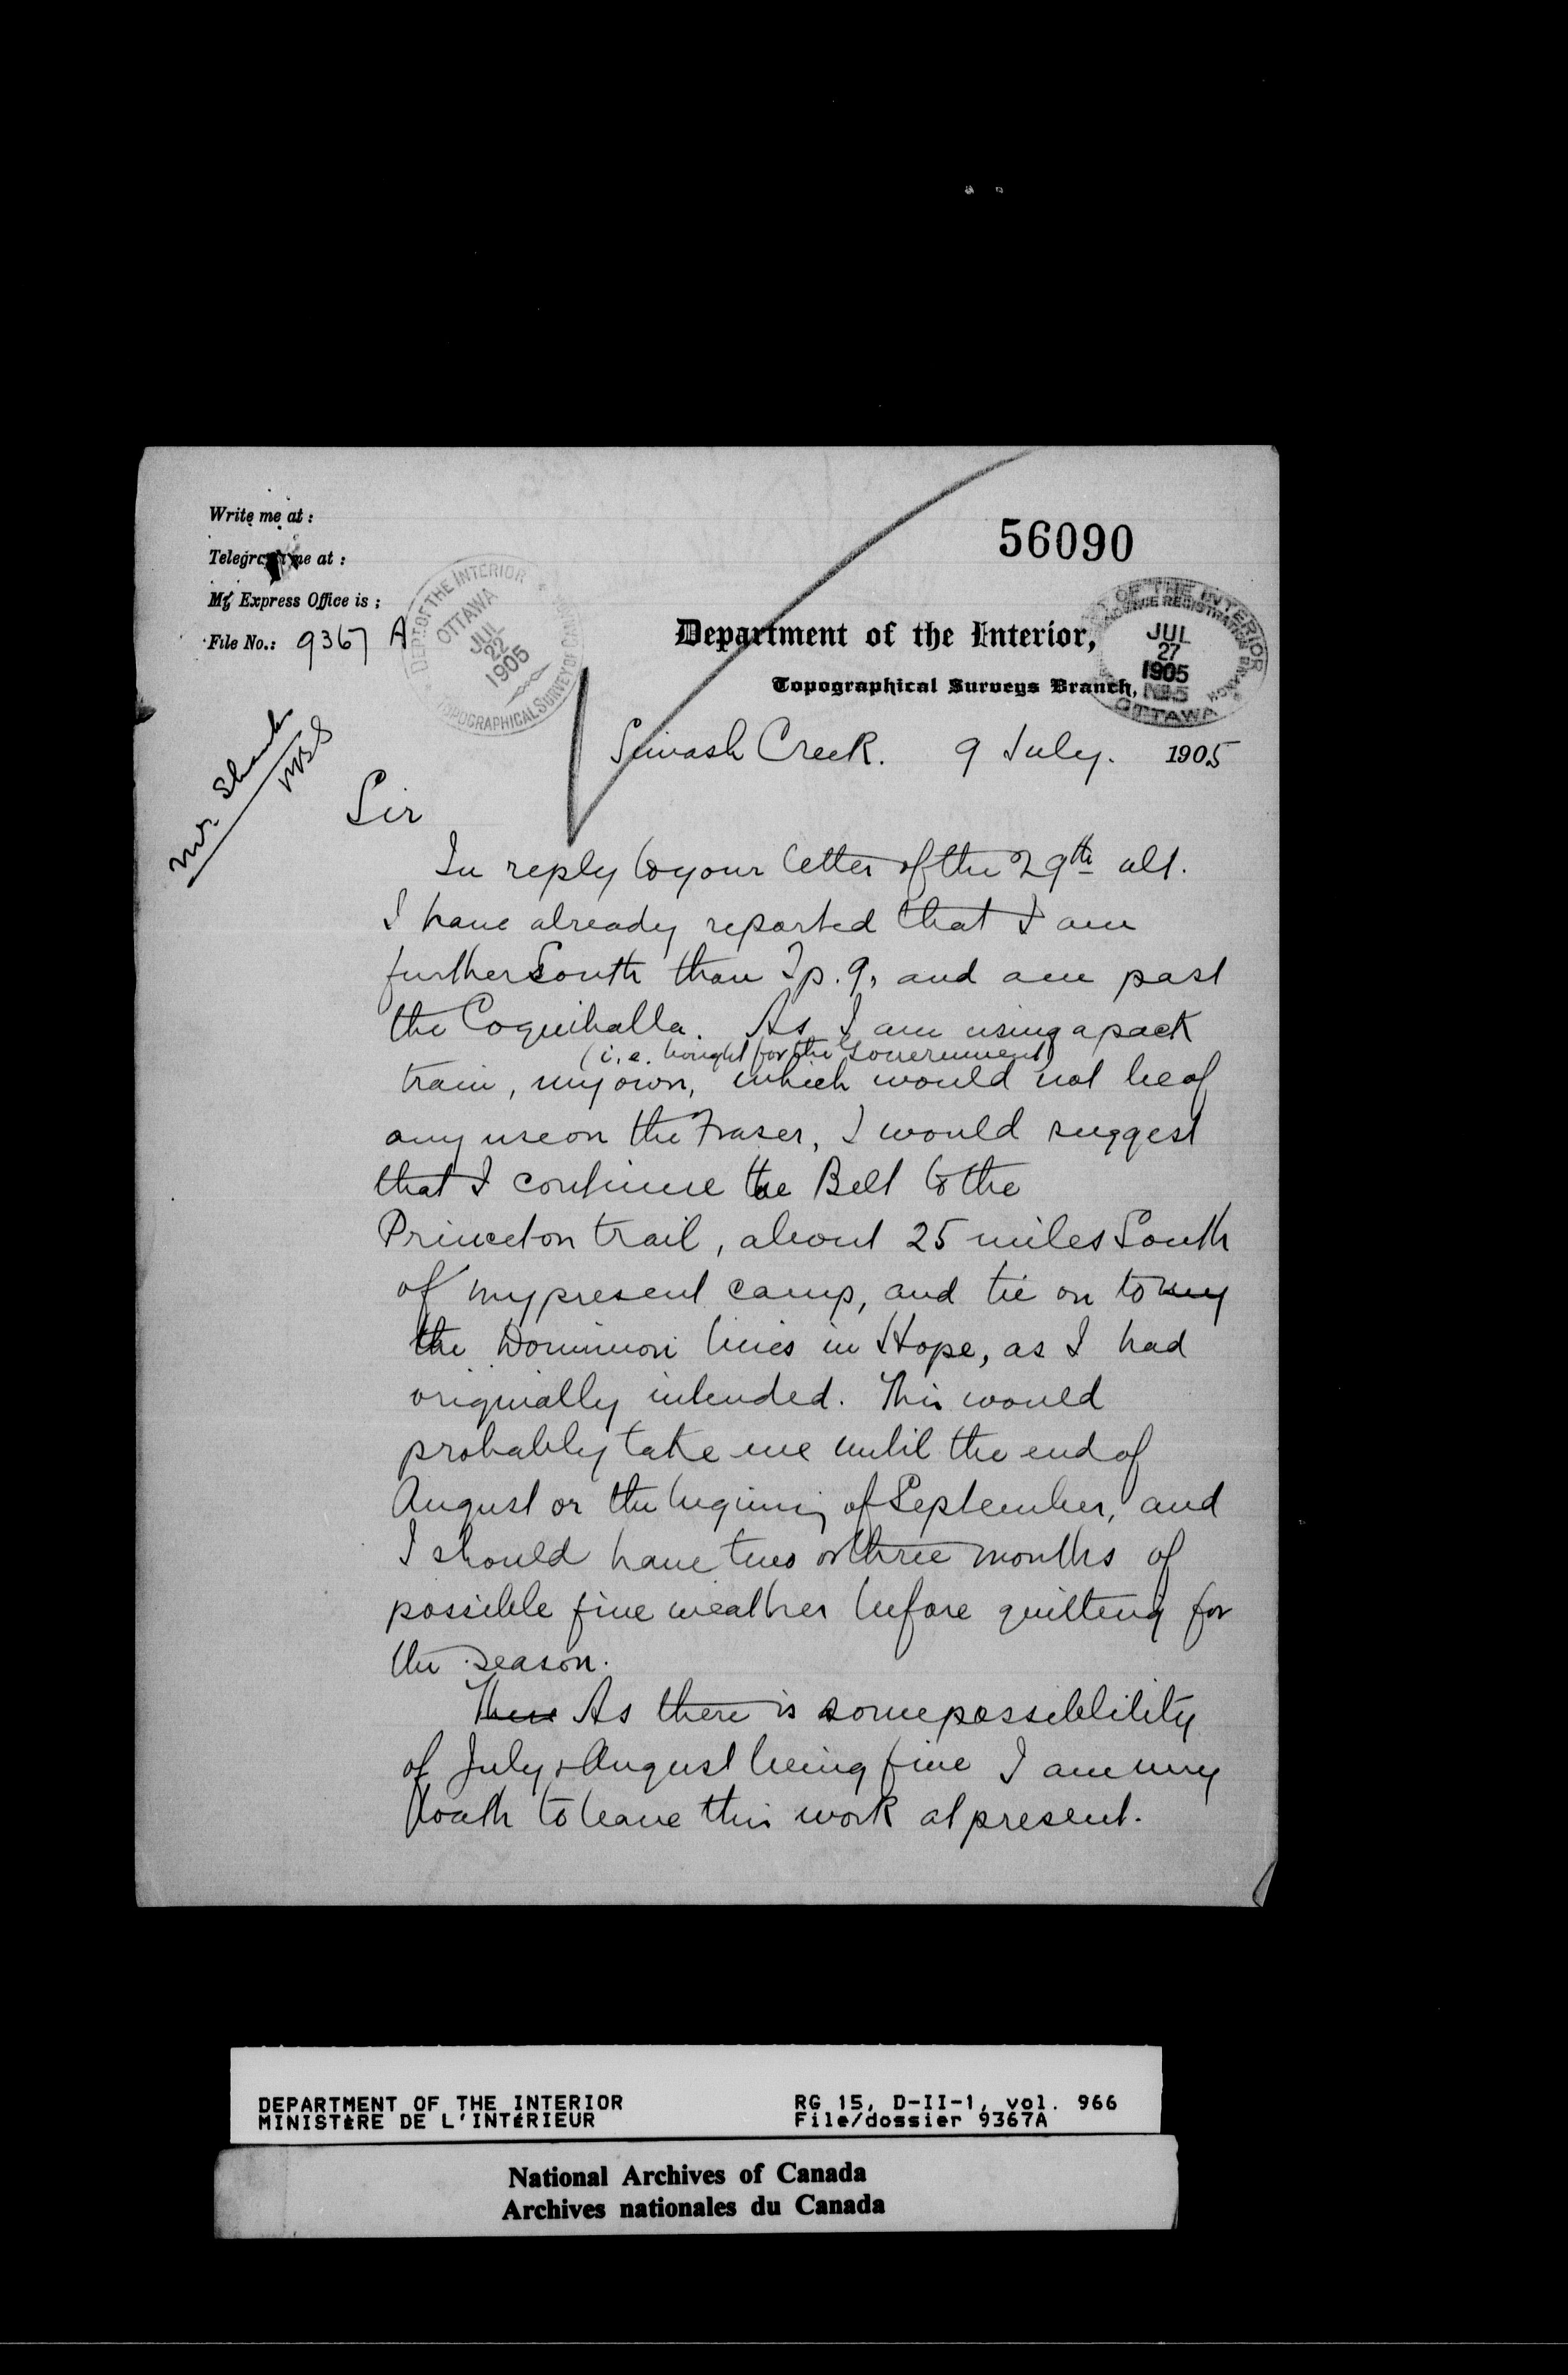 Write me at :
Telegraph me at :
My Express Office is ;
File No.: 9367 A
56090
DEPT. OF THE INTERIOR
OTTAWA
JUL
22
1905
TOPOGRAPHICAL SURVEY OF CANADA
Department of the Interior,
Topographical Surveys Branch,
OF THE INTERIOR
REGISTRATION
JUL
27
1905
OTTAWA
Mr. Shanks
Siwash Creek. 9 July. 1905
Sir
In reply to your letter of the 29th ult.
I have already reported that I am
further South than Tp. 9, and am past
the Coquihalla. As I am using a pack
(i.e. bought for the Government)
train, my own, which would not be of
any use on the Fraser, I would suggest
that I continue the Belt to the
Princeton trail, about 25 miles South
of my present camp, and tie on to my
the Dominion lines in Hope, as I had
originally intended. This would
probably take me until the end of
August or the begining of September, and
I should have two or three months of
possible fine weather before quitting for
the season.
There As there is some possiblility
of July & August being fine I am very
loath to leave this work at present.
DEPARTMENT OF THE INTERIOR
MINISTÈRE DE L'INTÉRIEUR
RG 15, D-II-1, vol. 966
File/dossier 9367A
National Archives of Canada
Archives nationales du Canada